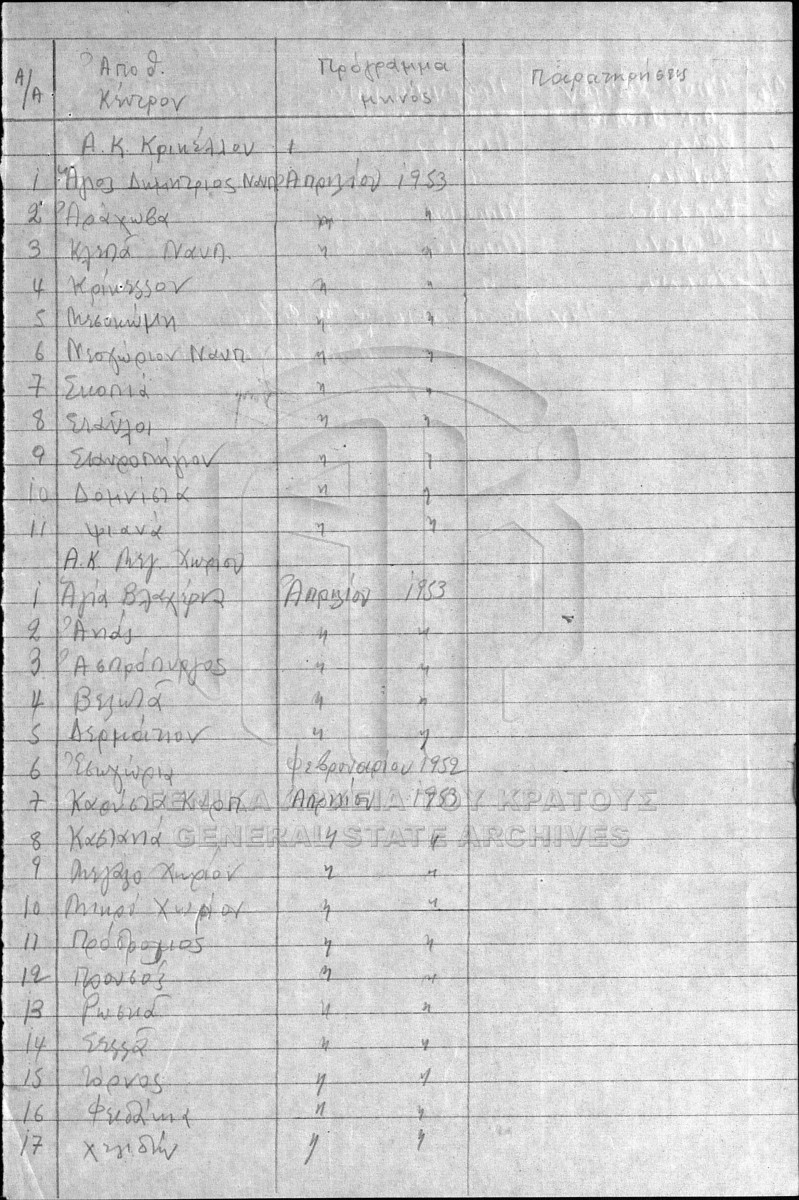 Α/Α Ἀποθ. Κέντρον Πρόγραμμα μηνός Παρατηρήσεις
Α.Κ. Κρικέλλου
1 Ἅγιος Δημήτριος Ναυπ. Ἀπριλίου 1953
2 Ἀράχωβα " "
3 Κλεπά Ναυπ. " "
4 Κρίκελλον " "
5 Μεσοκώμη " "
6 Νεοχώριον Ναυπ. " "
7 Σκοπιά " "
8 Σταῦλοι " "
9 Σταυροπήγιον " "
10 Δομνίστα " "
11 Ψιανά " "
Α.Κ Μεγ. Χωρίου
1 Ἁγία Βλαχέρνα Ἀπριλίου 1953
2 Ἀνιάς " "
3 Ἀσπρόπυργος " "
4 Βελωτά " "
5 Δερμάτιον " "
6 Ἐσωχώρια Φεβρουαρίου 1952
7 Καρίτσα Καρπ. Ἀπριλίου 1953
8 Καστανιά " "
9 Μεγάλο Χωρίον " "
10 Μικρό Χωρίον " "
11 Πρόδρομος " "
12 Προυσός " "
13 Ρωσκά " "
14 Σελλά " "
15 Τόρνος " "
16 Φειδάκια " "
17 Χελιδών " "
ΓΕΝΙΚΑ ΑΡΧΕΙΑ ΤΟΥ ΚΡΑΤΟΥΣ
GENERAL STATE ARCHIVES